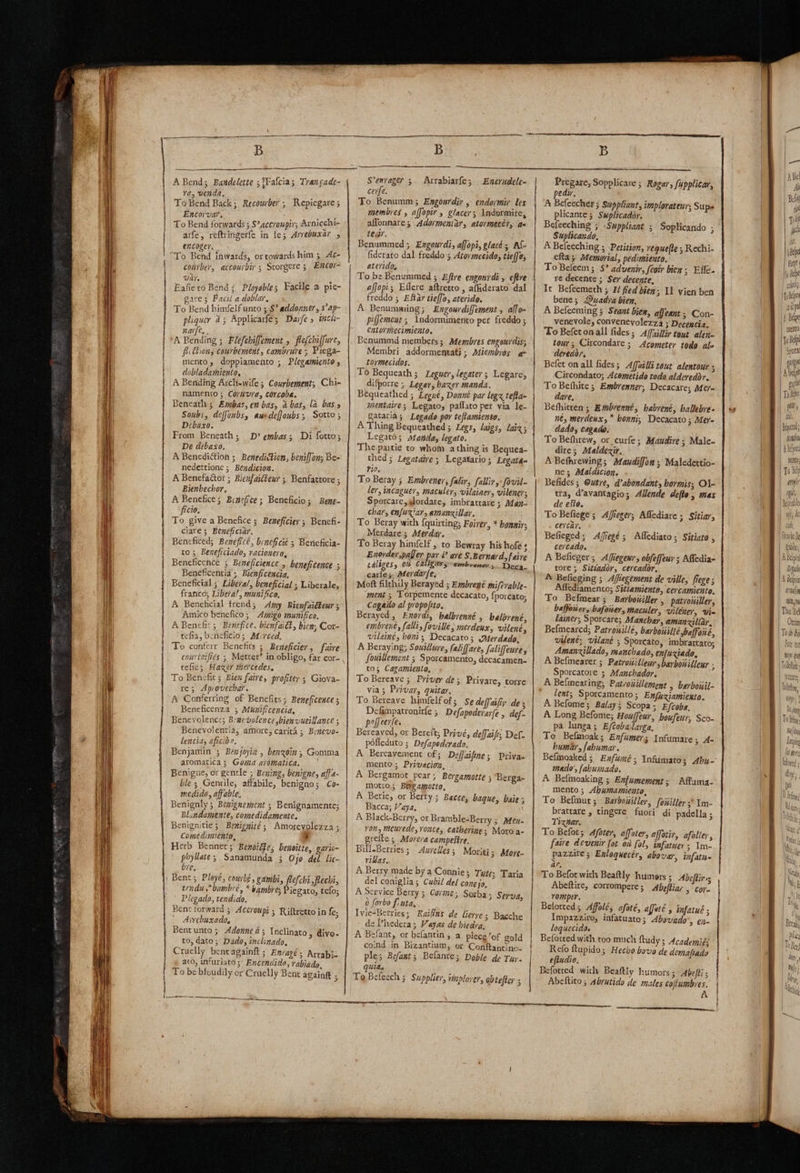 B
A Bend; Bandelette; Fascia; Trançade-
ra, venda.
To Bend Back; Recourber; Repiegare;
Encorvar.
To Bend forwards; S'accroupir; Arnicchi-
arse, restringerse in se; Arrebuxar,
encoger.
To Bend inwards, or towards him; Ac-
courber, accourbir; Storgere; Encor-
vàr.
Easie to Bend; Ployable; Facile a pie-
gare; Facil a doblar.
To Bend himself unto; S'addonner, s'ap-
pliquer à; Applicarse; Darse, incli-
narse.
A Bending; Fleschissement, fleschissure,
flection, courbement, cambrure; Piega-
mento, doppiamento; Plegamiento,
dobladamiento.
A Bending Arch-wise; Courbement; Chi-
namento; Corúvra, corcoba.
Beneath; Embas, en bas, à bas, là bas,
Soubs, dessoubs, au dessoubs; Sotto;
Debaxo.
From Beneath; D'embas; Di sotto;
De debaxo.
A Benediction; Benediction, benisson; Be-
nedettione; Bendicion.
A Benefactor; Bienfaicteur; Benfattore;
Bienhechor.
A Benefice; Benefice; Beneficio; Bene-
ficio.
To give a Benefice; Beneficier; Benefi-
ciare; Beneficiàr.
Beneficed; Beneficé, beneficié; Beneficia-
to; Beneficiado, racionero.
Beneficence; Beneficience, beneficence;
Beneficentia; Bienficencia.
Beneficial; Liberal, beneficial; Liberale,
franco; Liberal, munifico.
A Beneficial friend; Amy Bienfaicteur;
Amico benefico; Amigo munifico.
A Benefit; Benefice, bienfaict, bien; Cor-
tesia, beneficio; Merced.
To conferr Benefits; Beneficier, faire
courtoisies; Metter' in obligo, far cor-
tesie; Hazer mercedes.
To Benefit; Bien faire, profiter; Giova-
re; Aprovechar.
A Conferring of Benefits; Beneficence;
Beneficenza; Munificencia.
Benevolence; Benevolence, bienvueillance;
Benevolentia, amore, carità; Benevo-
lencia, aficion.
Benjamin; Benjoyia, benzoin; Gomma
aromatica; Goma aromatica.
Benigne, or gentle; Bening, benigne, affa-
ble; Gentile, affabile, benigno; Co-
medido, affable.
Benignly; Benignement; Benignamente;
Blandamente, comedidamente.
Benignitie; Benignité; Amorevolezza;
Comedimiento.
Herb Bennet; Benoiste, benoitte, gario-
phyllate; Sanamunda; Ojo del lie-
bre.
Bent; Ployé, courbé, gambi, fleschi, flechi,
tendu, * bambré, * kambre; Piegato, teso;
Plegado, tendido.
Bent forward; Accroupi; Ristretto in se;
Arrebuxado.
Bent unto; Adonné à; Inclinato, divo-
to, dato; Dado, inclinado.
Cruelly bent against; Enragé; Arrabi-
ato, infuriato; Encendido, rabiado.
To be bloudily or Cruelly Bent against;
B
S'enrager; Arrabiarse; Encrudele-
cerse.
To Benumm; Engourdir, endormir les
membres, assopir, glacer; Indormire,
assonnare; Adormentàr, atormecèr, a-
tecìr.
Benummed; Engourdi, assopi, glacé; As-
siderato dal freddo; Atormecido, tiesso,
aterido.
To be Benummed; Estre engourdi, estre
assopi; Essere astretto, assiderato dal
freddo; Estàr tiesso, aterido.
A Benumming; Engourdissement, asso-
pissement; Indormimento per freddo;
Entormecimiento.
Benummd members; Membres engourdis;
Membri addormentati; Miembros a-
tormecidos.
To Bequeath; Leguer, legater; Legare,
disporre; Legar, hazer manda.
Bequeathed; Legué, Donné par legs testa-
mentaire; Legato, passato per via le-
gataria; Legado por testamiento.
A Thing Bequeathed; Legs, laigs, laiz;
Legato; Manda, legato.
The partie to whom a thing is Bequea-
thed; Legataire; Legatario; Legata-
rio.
To Beray; Embrener, falir, fallir, fouil-
ler, incaguer, maculer, vilainer, vilener;
Sporcare, lordare, imbrattare; Man-
char, ensuziar, amanzillar.
To Beray with squirting; Foirer, * bonnir;
Merdare; Merdar.
To Beray himself, to Bewray his hose;
Enorder, passer par l'aré S. Bernard, faire
caliges, ou caligers, embrener; Deca-
carse; Merdarse.
Most filthily Berayed; Embrené miserable-
ment; Torpemente decacato, sporcato;
Cagado al proposito.
Berayed, Enordi, balbrenné, balbrené,
embrené, falli, fouillé, merdeux, vilené,
vilainé, boni; Decacato; Merdado.
A Beraying; Souillure, falissure, falisseure,
fouillement; Sporcamento, decacamen-
to; Cagamiento.
To Bereave; Priver de; Privare, torre
via; Privar, quitar.
To Bereave himself of; Se dessaisir de;
Desimpatronirse; Desapoderarse, des-
posseerse.
Bereaved, or Bereft; Privé, dessaisi; Des-
posseduto; Desapoderado.
A Bereavement of; Dessaisine; Priva-
mento; Privacion.
A Bergamot pear; Bergamotte; Berga-
motto; Bergamotto.
A Berie, or Berry; Bacce, baque, baie;
Bacca; Vaya.
A Black-Berry, or Bramble-Berry; Meu-
ron, meurede, ronce, catherine; Moro a-
greste; Morera campestre.
Bill-Berries; Aurelles; Moriti; More-
rillas.
A Berry made by a Connie; Tute; Taria
del coniglia; Cubil del conejo.
A Service Berry; Corme; Sorba; Serva,
o sorbo fruta.
Ivie-Berries; Raisins de lierre; Bacche
de l'hedera; Vayas de hiedra.
A Besant, or besantin, a piece of gold
coind in Bizantium, or Constantino-
ple; Besant; Besante; Doble de Tur-
quia.
To Beseech; Supplier, implorer, obtester;
B
Pregare, Sopplicare; Rogar, supplicar,
pedir.
A Beseecher; Suppliant, implorateur; Sup-
plicante; Suplicadòr.
Beseeching; Suppliant; Soplicando;
Suplicando.
A Beseeching; Petition, requeste; Rechi-
esta; Memorial, pedimiento.
To Beseem; S'advenir, seoir bien; Esse-
re decente; Ser decente.
It Beseemeth; Il sied bien; Il vien ben
bene; Quadra bien.
A Beseeming; Seant bien, asseant; Con-
venevole, convenevolezza; Decencia.
To Beset on all sides; Assaillir tout alen-
tour; Circondare; Acometer todo al-
deredòr.
Beset on all sides; Assailli tout alentour;
Circondato; Acometido todo alderedòr.
To Beshite; Embrenner; Decacare; Mer-
dare.
Beshitten; Embrenné, habrené, hallebre-
né, merdeux, * bonni; Decacato; Mer-
dado, cagado.
To Beshrew, or curse; Maudire; Male-
dire; Maldezir.
A Beshrewing; Maudisson; Maledettio-
ne; Maldicion.
Besides; Outre, d'abondant, hormis; Ol-
tra, d'avantagio; Allende desto, mas
de esto.
To Besiege; Assieger; Assediare; Sitiar,
cercàr.
Besieged; Assiegé; Assediato; Sitiato,
cercado.
A Besieger; Assiegeur, obsesseur; Assedia-
tore; Sitiadòr, cercadòr.
A Besieging; Assiegement de ville, siege;
Assediamento; Sitiamiento, cercamiento.
To Besmear; Barbouiller, patrouiller,
baffouer, bafouer, maculer, vilener, vi-
lainer; Sporcare; Manchar, amanzillàr.
Besmeared; Patrouillé, barbouillé, baffoué,
vilené, vilainé; Sporcato, imbrattato;
Amanzillado, manchado, ensuziado.
A Besmearer; Patrouilleur, barbouilleur;
Sporcatore; Manchador.
A Besmearing; Patrouillement, barbouil-
lent; Sporcamento; Ensuziamiento.
A Besome; Balay; Scopa; Escoba.
A Long Besome; Housseur, bousseur; Sco-
pa lunga; Escoba larga.
To Besmoak; Enfumer; Infumare; A-
humàr, sahumar.
Besmoaked; Enfumé; Infumato; Ahu-
mado, sahumado.
A Besmoaking; Enfumement; Affuma-
mento; Ahumamiento.
To Besmut; Barbouiller, souiller; Im-
brattare, tingere fuori di padella;
Tiznar.
To Besot; Asoter, assoter, assotir, asolier,
faire devenir sot ou fol, infatuer; Im-
pazzire; Enloquecér, abovar, infatu-
àr.
To Besot with Beastly humors; Abestir;
Abestire, corrompere; Abestiar, cor-
romper.
Besotted; Affolé, asoté, assoté, infatué;
Impazziro, infatuato; Abovado, en-
loquecido.
Besotted with too much study; Academié;
Reso stupido; Hecho bovo de demasiado
estudio.
Besotted with Beastly humors; Abesti;
Abestito; Abrutido de males costumbres.
A